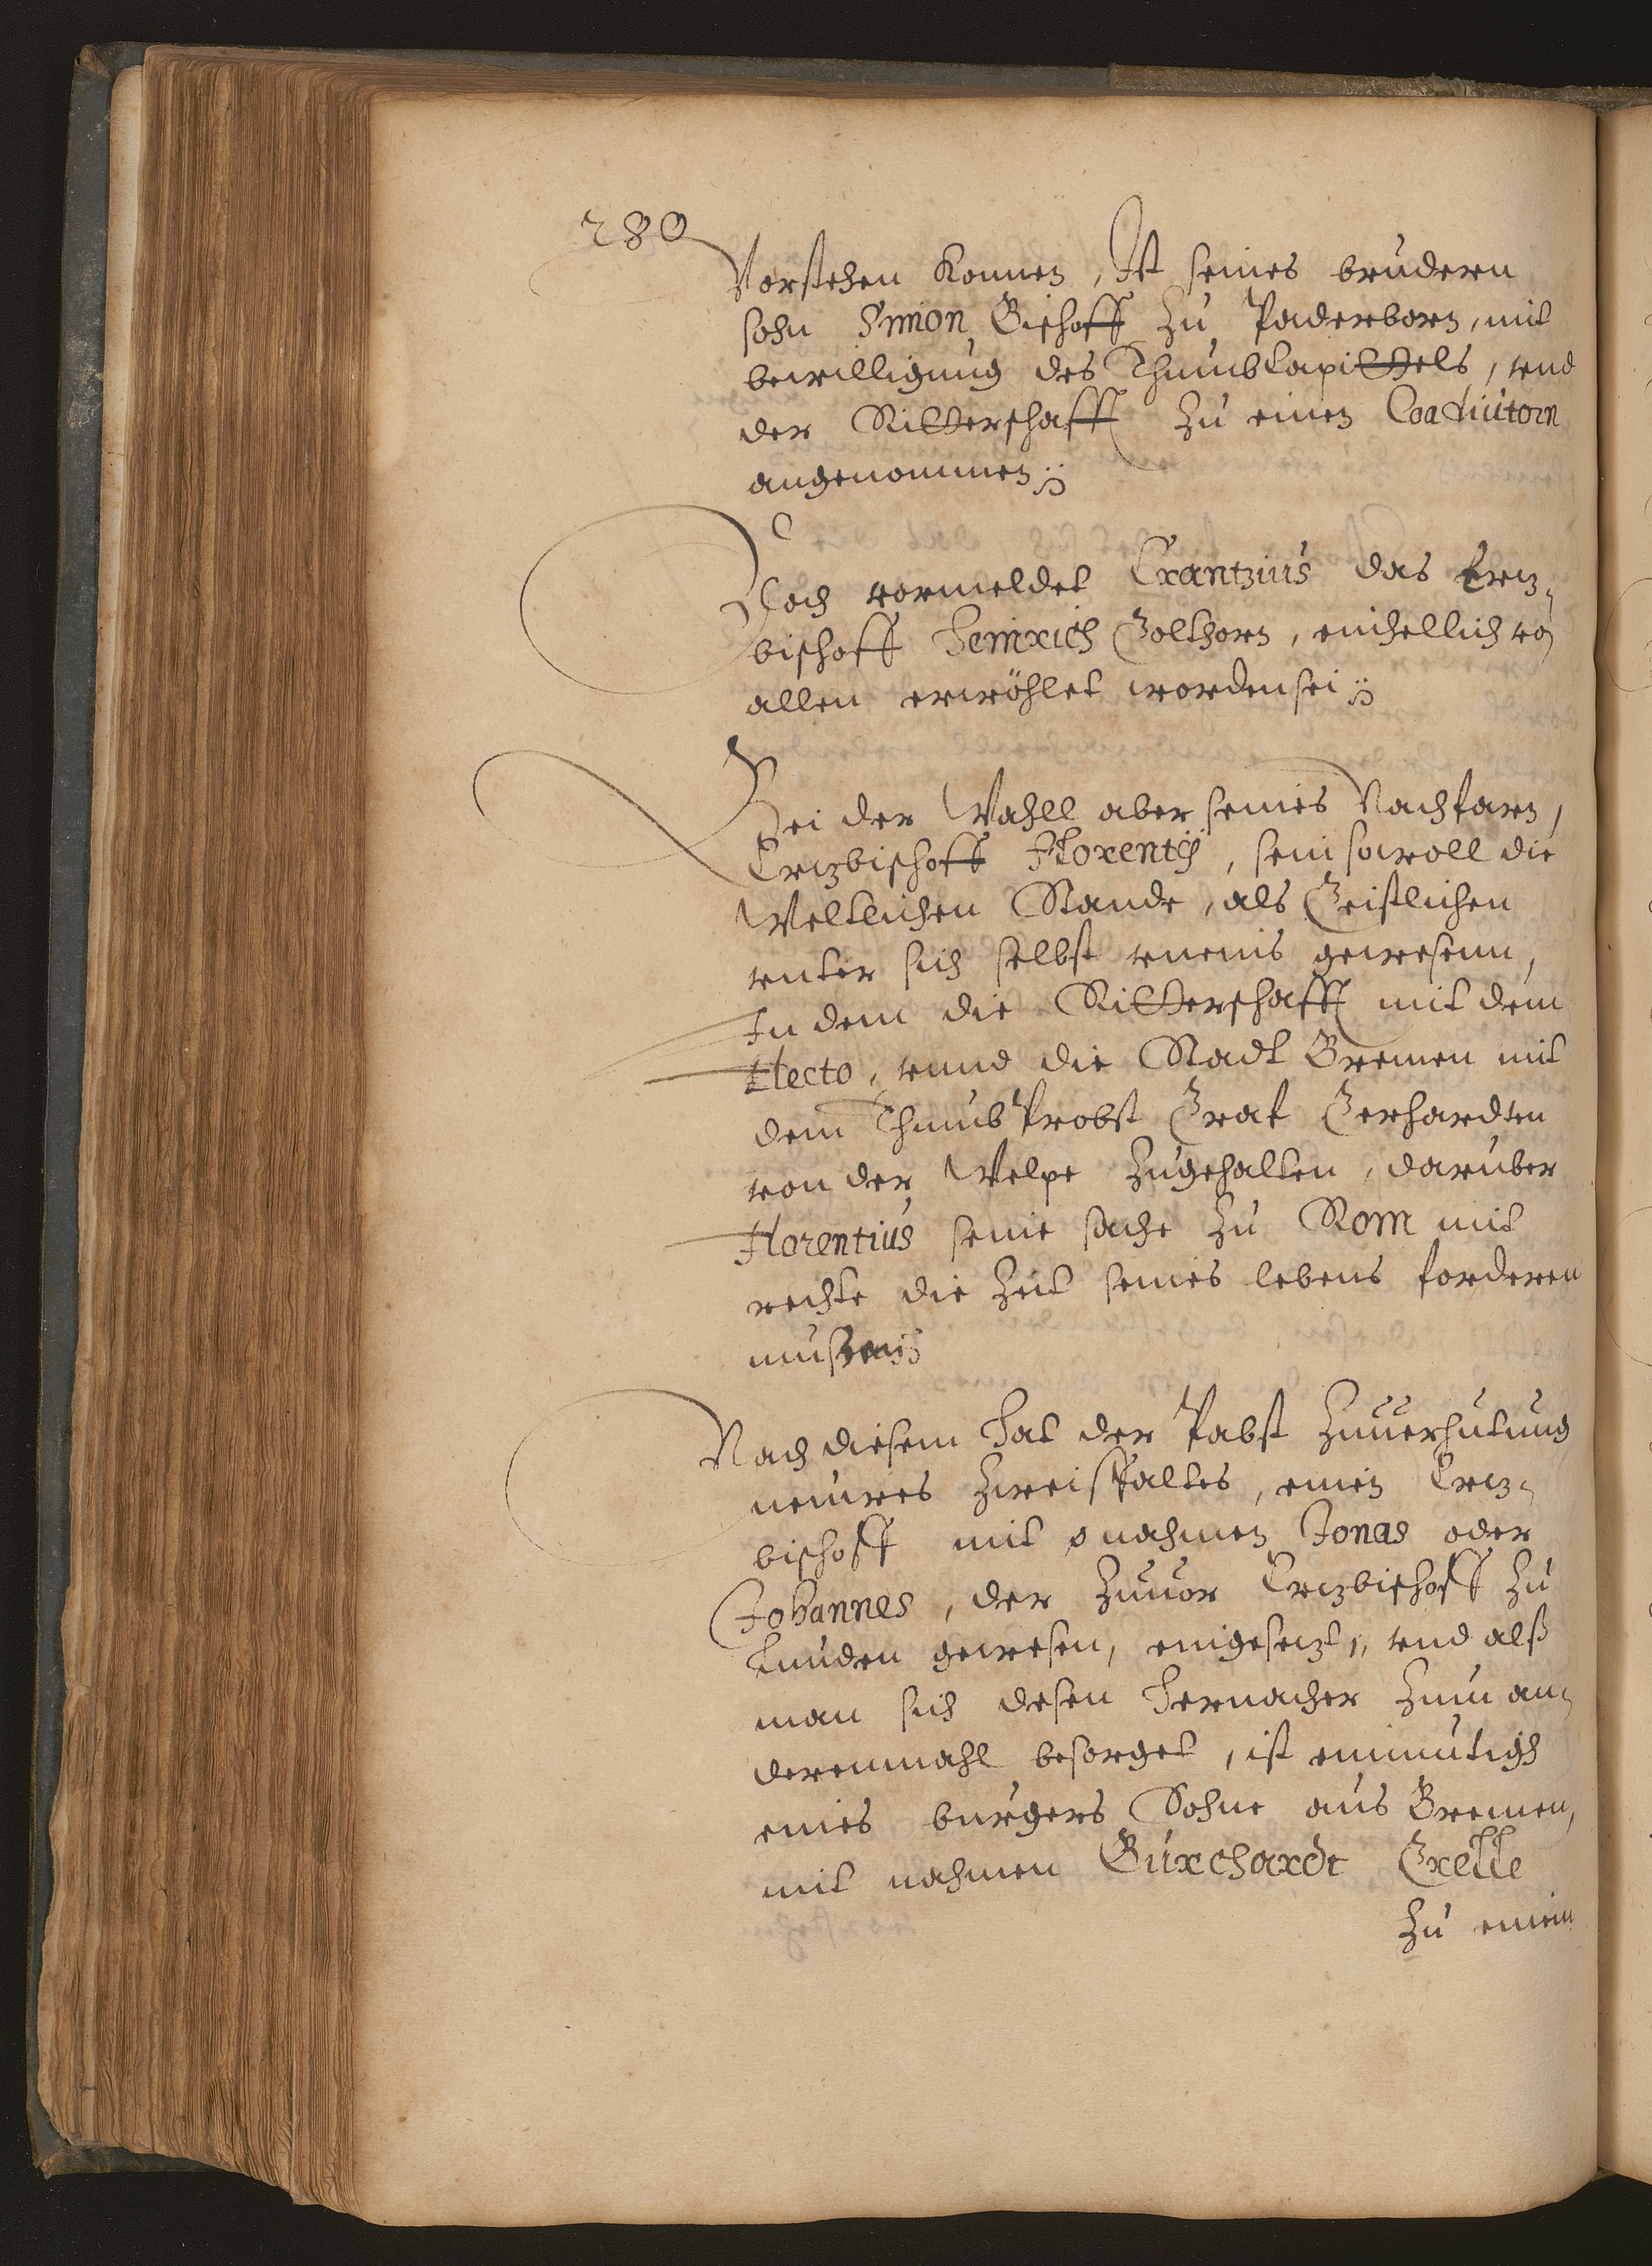 280
Vorstehen konnen, Ist seines brudern
sohn Simon Bischoff zu Paderborn, mit
bewilligung des Thumbkapittels, vnd
der Ritterschafft zu einen Coadiutorn
angenommen
Doch vormeldet Crantzius das Ertz-
bischoff Heinrich Golthorn, einhellich von
allen erwöhlet worden sei
Bei der Wahll aber seines Nachfarn,
Ertzbischoff Florentij, sein sowoll die
Weltlichen Stande, als Geistlichen
vnter sich selbst vneins gewesenn,
In dem die Ritterschafft mit dem
Electo, vnnd die Stadt Bremen mit
dem Thumb Probst Graf Gerhardten
von der Welpe zugehalten, daruber
Florentius seine sache zu Rom mit
rechte die Zeit seines lebens forderen
mussen
Nach diesem hat der Pabst zuuerhutung
neuwes Zweispaltes, einen Ertz-
bischoff mit nahmen Jonas oder
Johannes, der zuuor Ertzbischoff zu
Lunden gewesen, eingesetzt, vnd alß
man sich desen hernacher zum an-
derenmahl besorget, ist einmutigh
eines burgers Sohne aus Bremen,
mit nahmen Burchardt Grelle
zu einem